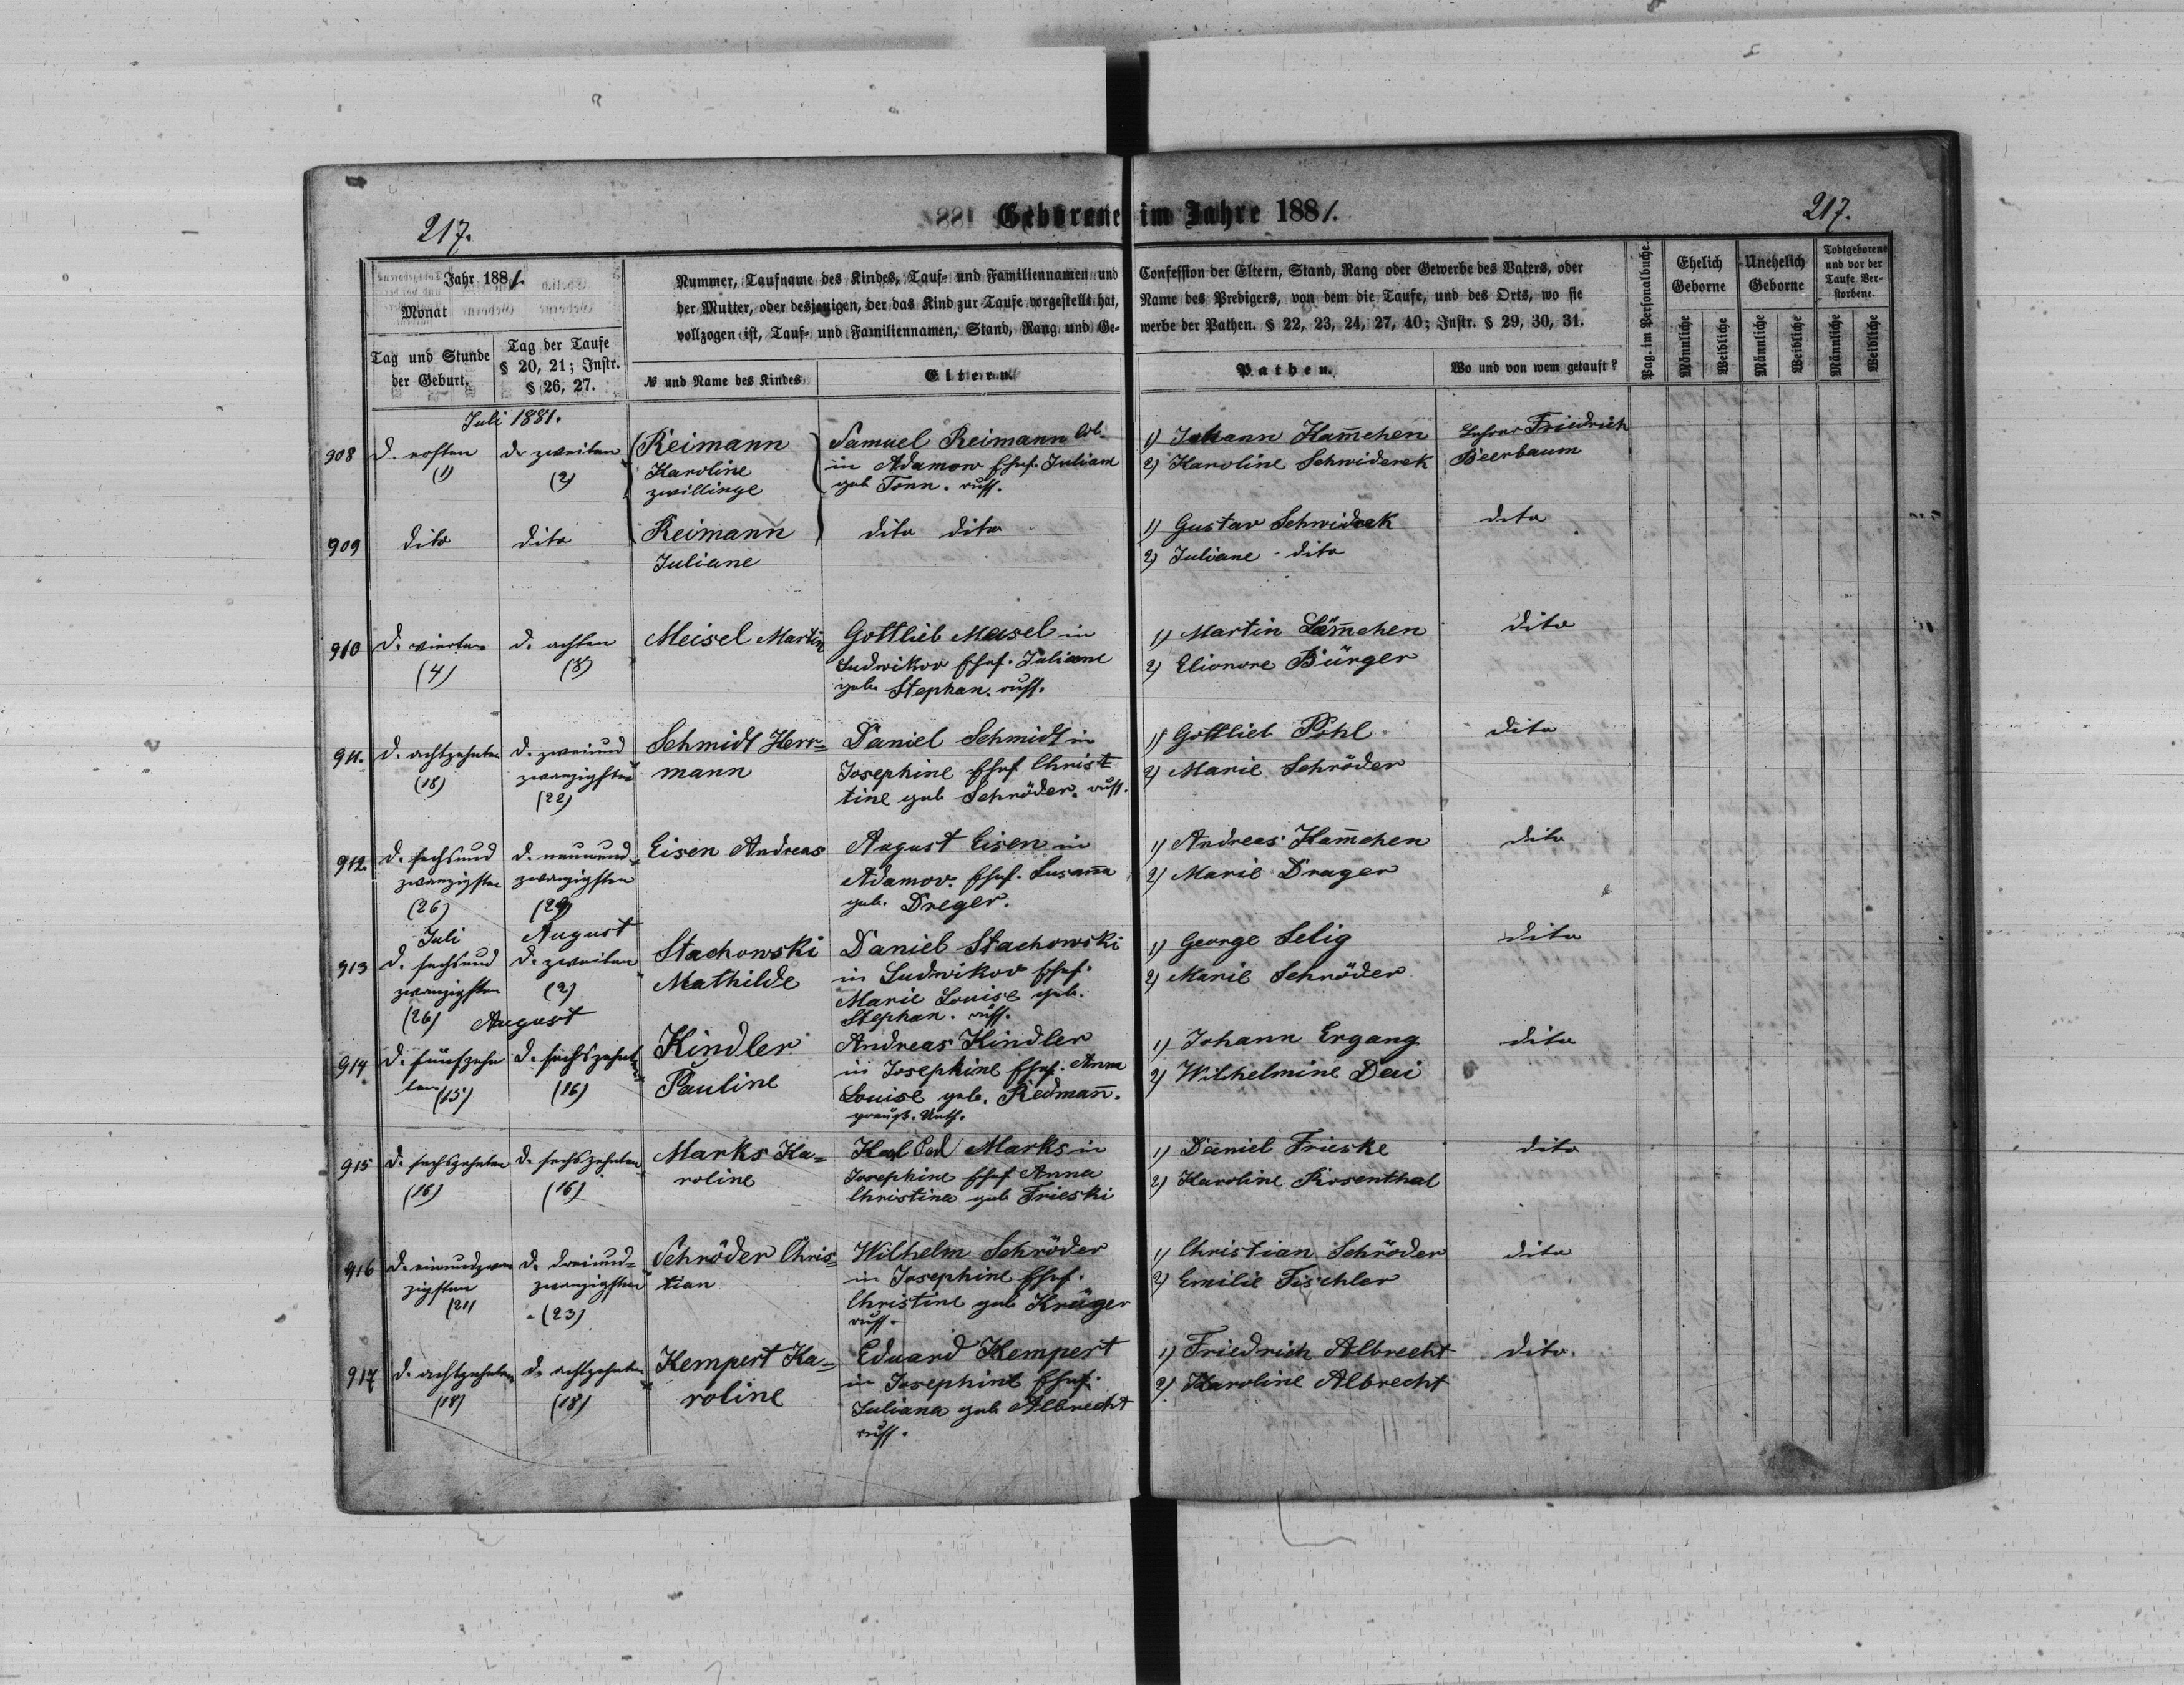 217.
Geborene im Jahre 1881.
217.
Jahr 1881.
Monat
Tag und Stunde der Geburt.
Tag der Taufe § 20, 21; Instr. § 26, 27.
Nummer, Taufname des Kindes, Tauf- und Familiennamen und
der Mutter, oder desjenigen, der das Kind zur Taufe vorgestellt hat,
vollzogen ist, Tauf- und Familiennamen, Stand, Rang und Ge-
№ und Name des Kindes
Eltern.
Confession der Eltern, Stand, Rang oder Gewerbe des Vaters, oder
Name des Predigers, von dem die Taufe, und des Orts, wo sie
werbe der Pathen. § 22, 23, 24, 27, 40; Instr. § 29, 30, 31.
Pathen.
Wo und von wem getauft?
Pag. im Personalbuche.
Ehelich Geborne
Unehelich Geborne
Todtgeborene und vor der Taufe Verstorbene.
Männliche
Weibliche
Männliche
Weibliche
Männliche
Weibliche
Juli 1881.
908
d. ersten
(1)
d. zweiten
(2)
Reimann
Karoline
zwillinge
Samuel Reimann Col.
in Adamow Ehef. Juliane
geb Tonn. russ.
1) Johann Kam̄chen
2) Karoline Schwiderek
Lehrer Friedrich
Beerbaum
909
dito
dito
Reimann
Juliane
dito dito
1) Gustav Schwiderek
2) Juliane - dito
dito
910
d. vierten
(4)
d. achten
(8)
Meisel Martin
Gottlieb Meisel in
Ludwikow Ehef. Juliane
geb. Stephan. russ.
1) Martin Läm̄chen
2) Elionore Bürger
dito
911.
d. achtzehnten
(18)
d. zweiund
zwanzigsten
(22)
Schmidt Herr=
mann
Daniel Schmidt in
Josephine Ehef Christ=
tine geb Schröder. russ.
1) Gottlieb Pohl
2) Marie Schröder
dito
912.
d. sechsund
zwanzigsten
(26)
d. neunund
zwanzigsten
(29)
Eisen Andreas
August Eisen in
Adamov. Ehef. Susan̄a
geb. Dreger.
1) Andreas Kam̄chen
2) Marie Drager
dito
Juli
August
913
d. sechsund
zwanzigsten
(26)
d. zweiten
(2)
Stachowski
Mathilde
Daniel Stachowski
in Ludwikov Ehef.
Marie Louise geb.
Stephan. russ.
1) George Selig
2) Marie Schröder
dito
August
914
d. fünfzehn
ten (15)
d. sechszehnt
(16)
Kindler
Pauline
Andreas Kindler
in Josephine Ehef. Anna
Louise geb. Redman̄.
preuß. Unth.
1) Johann Ergang
2) Wilhelmine Dei
dito
915
d. sechszehnten
(16)
d. sechszehnten
(16)
Marks Ka=
roline
Karl Marks in
Josephine Ehef Anna
Christina geb Frieski
1) Daniel Frieske
2) Karoline Rosenthal
dito
916
d. einundzwan
zigsten
(21)
d. dreiund=
zwanzigsten
(23)
Schröder Chris=
tian
Wilhelm Schröder
in Josephine Ehef.
Christine geb Krüger
russ.
1) Christian Schröder
2) Emilie Fischler
dito
917
d. achtzehnten
(18)
d. achtzehnten
(18)
Kempert Ka=
roline
Eduard Kempert
in Josephine Ehef.
Juliana geb Albrecht
russ.
1) Friedrich Albrecht
2) Karoline Albrecht
dito.